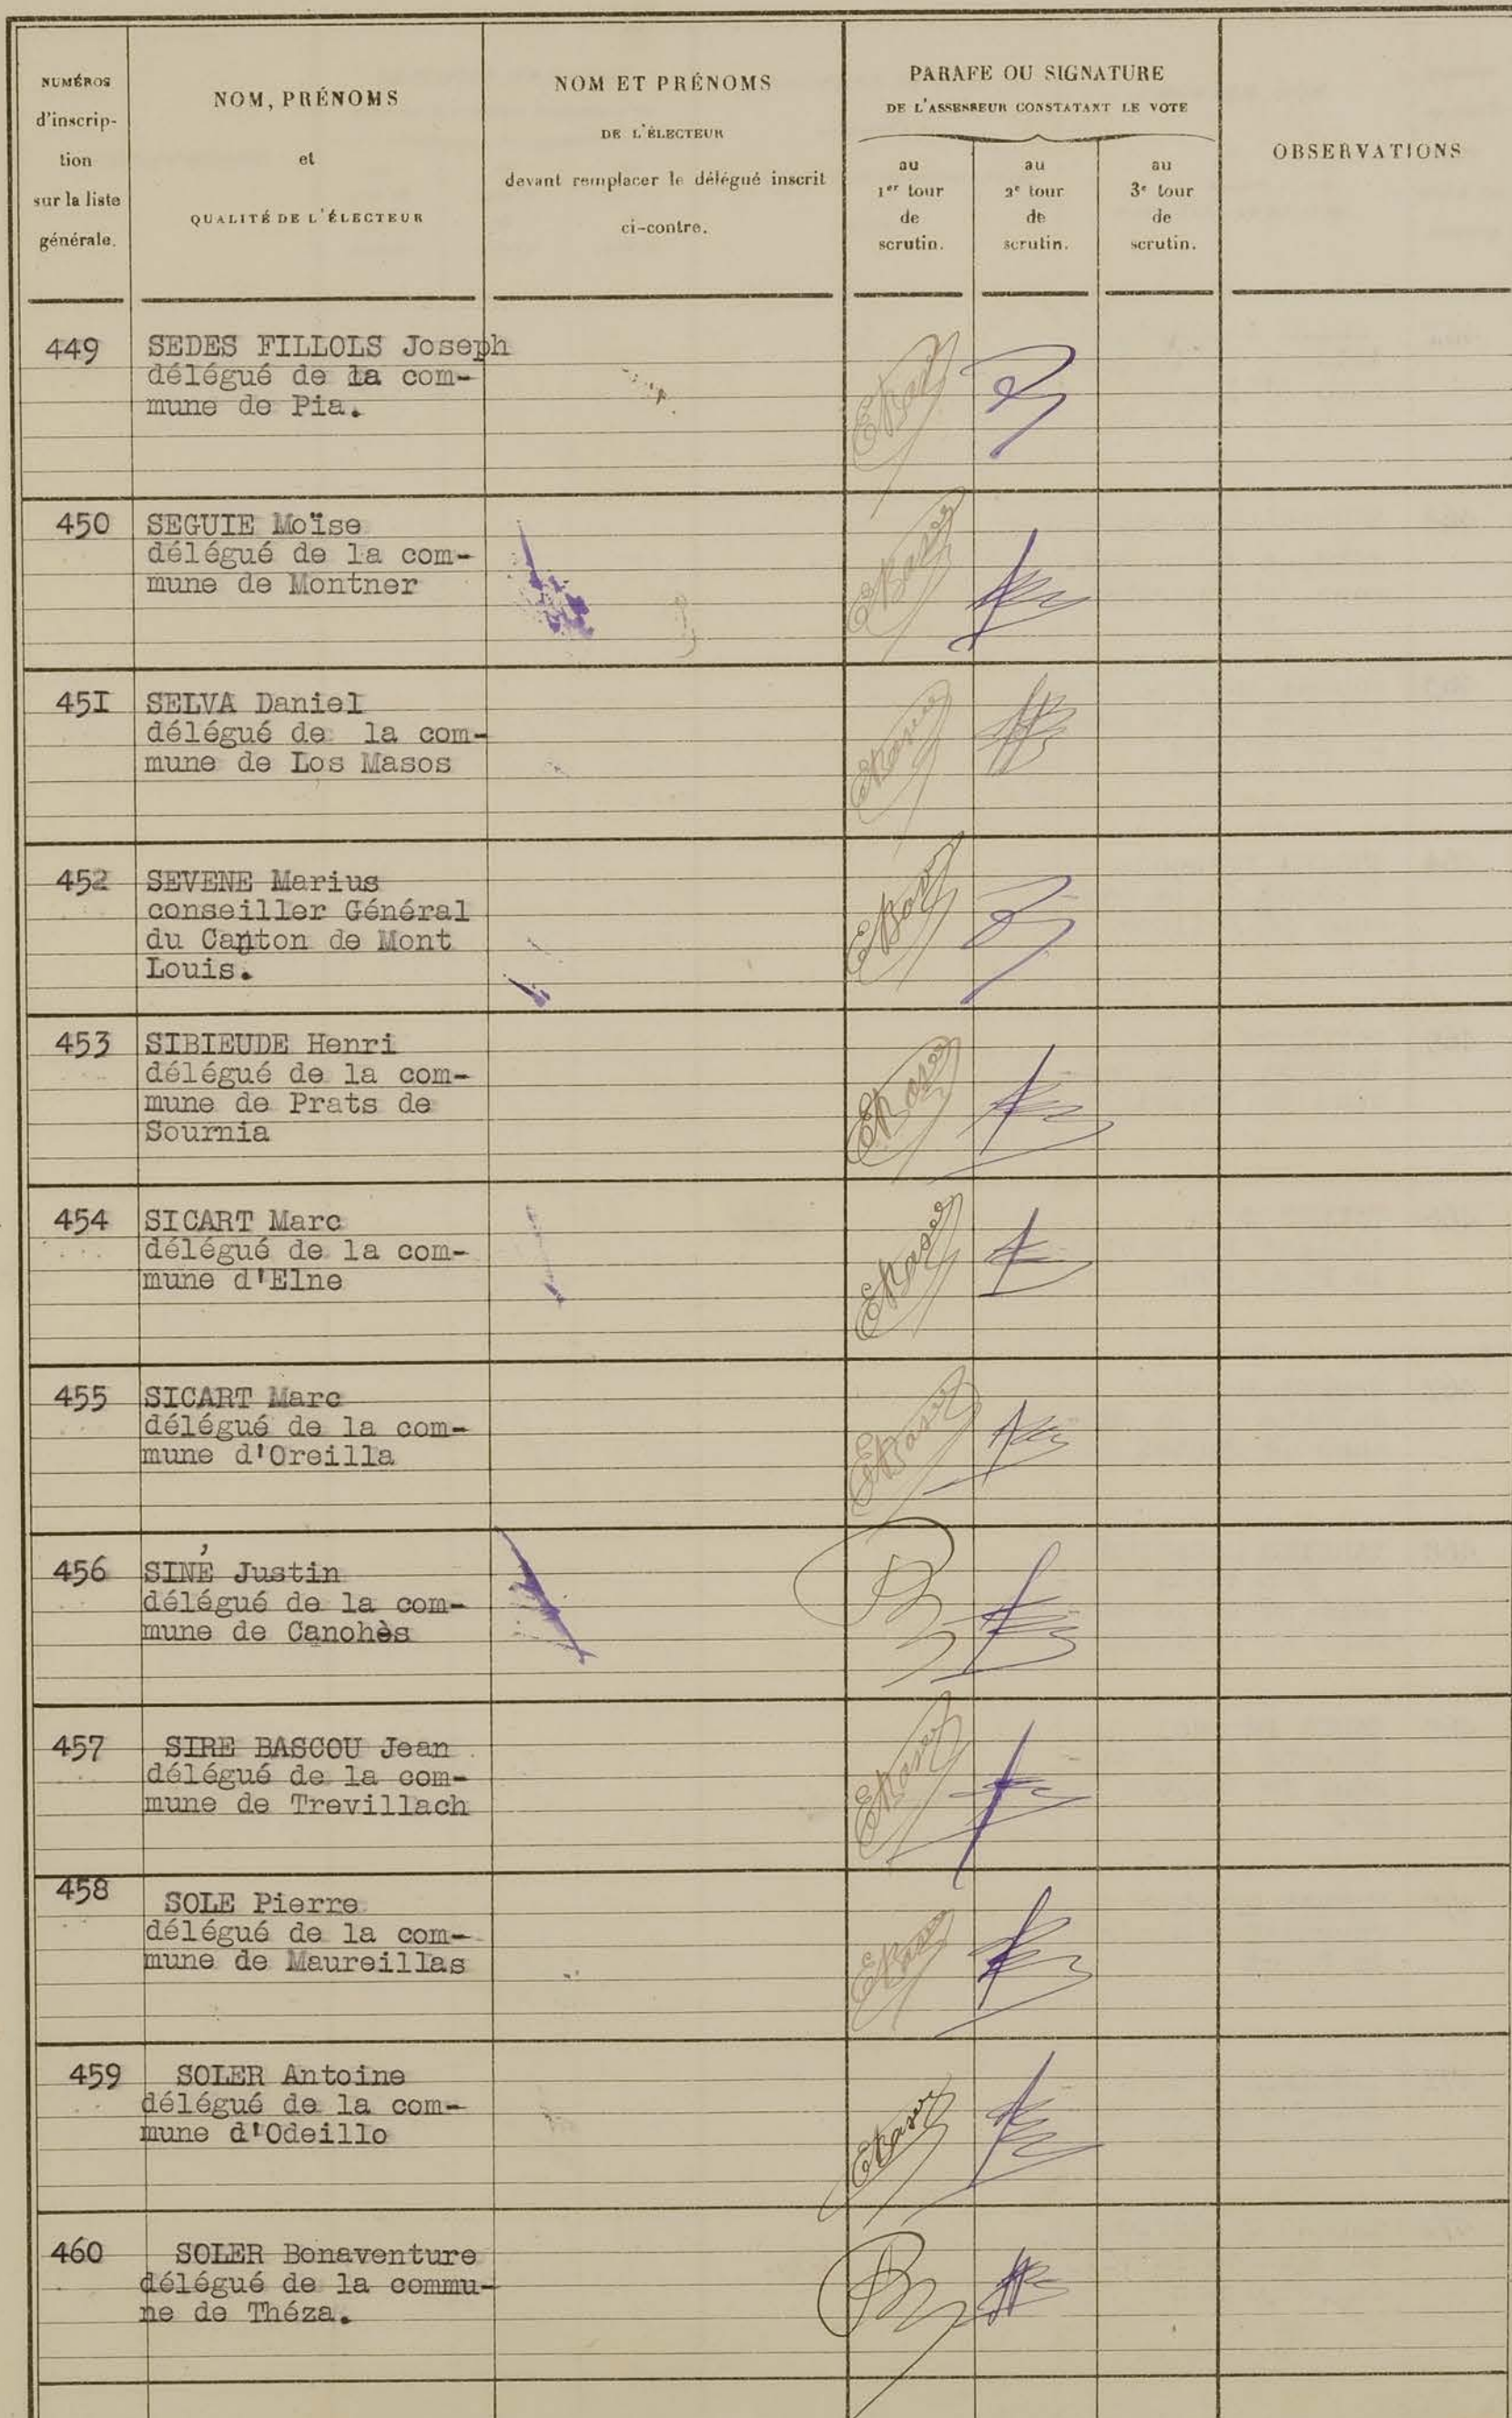 NUMÉROS
d'inscrip-
tion
sur la liste
générale.
NOM, PRÉNOMS
et
QUALITÉ DE L'ÉLECTEUR
NOM ET PRÉNOMS
DE L'ÉLECTEUR
devant remplacer le délégué inscrit
ci-contre.
PARAFE OU SIGNATURE
DE L'ASSESSEUR CONSTATANT LE VOTE
au
1er tour
de
scrutin.
au
2e tour
de
scrutin.
au
3e tour
de
scrutin.
OBSERVATIONS
449 SEDES FILLOLS Joseph
délégué de la com-
mune de Pia.
450 SEGUIE Moïse
délégué de la com-
mune de Montner
45I SELVA Daniel
délégué de la com-
mune de Los Masos
452 SEVENE Marius
conseiller Général
du Canton de Mont
Louis.
453 SIBIEUDE Henri
délégué de la com-
mune de Prats de
Sournia
454 SICART Marc
délégué de la com-
mune d'Elne
455 SICART Marc
délégué de la com-
mune d'Oreilla
456 SINÉ Justin
délégué de la com-
mune de Canohès
457 SIRE BASCOU Jean
délégué de la com-
mune de Trevillach
458 SOLE Pierre
délégué de la com-
mune de Maureillas
459 SOLER Antoine
délégué de la com-
mune d'Odeillo
460 SOLER Bonaventure
délégué de la commu-
ne de Théza.